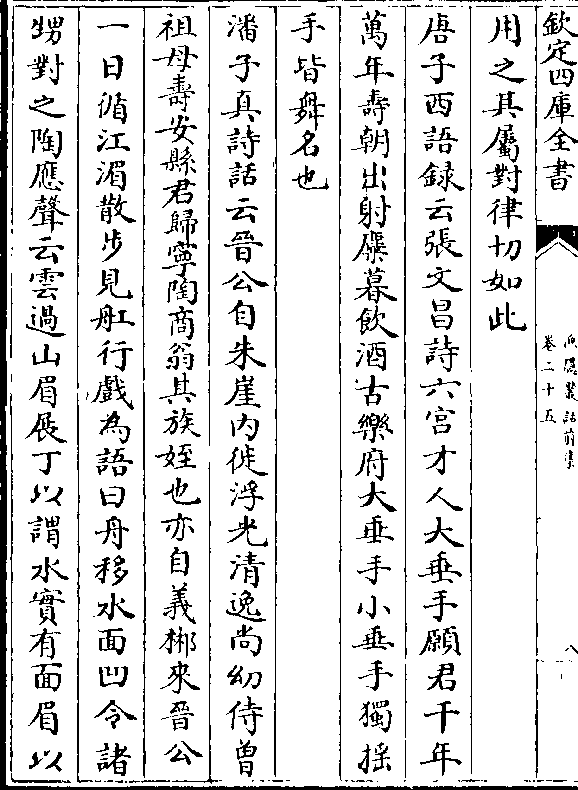 欽定四庫全書
漁隱叢話前集
卷二十五
八
用之其屬對律切如此
唐子西語録云張文昌詩六宫才人大垂手願君千年
萬年壽朝出射麋暮飲酒古樂府大垂手小垂手獨揺
手皆舞名也
潘子真詩話云晉公自朱崖内徙浮光清逸尚幼侍曾
祖母壽安縣君歸寧陶商翁其族姪也亦自義郴來晉公
一日循江湄散步見舡行戲為語曰舟移水面凹令諸
甥對之陶應聲云雲過山眉展丁以謂水實有面眉以